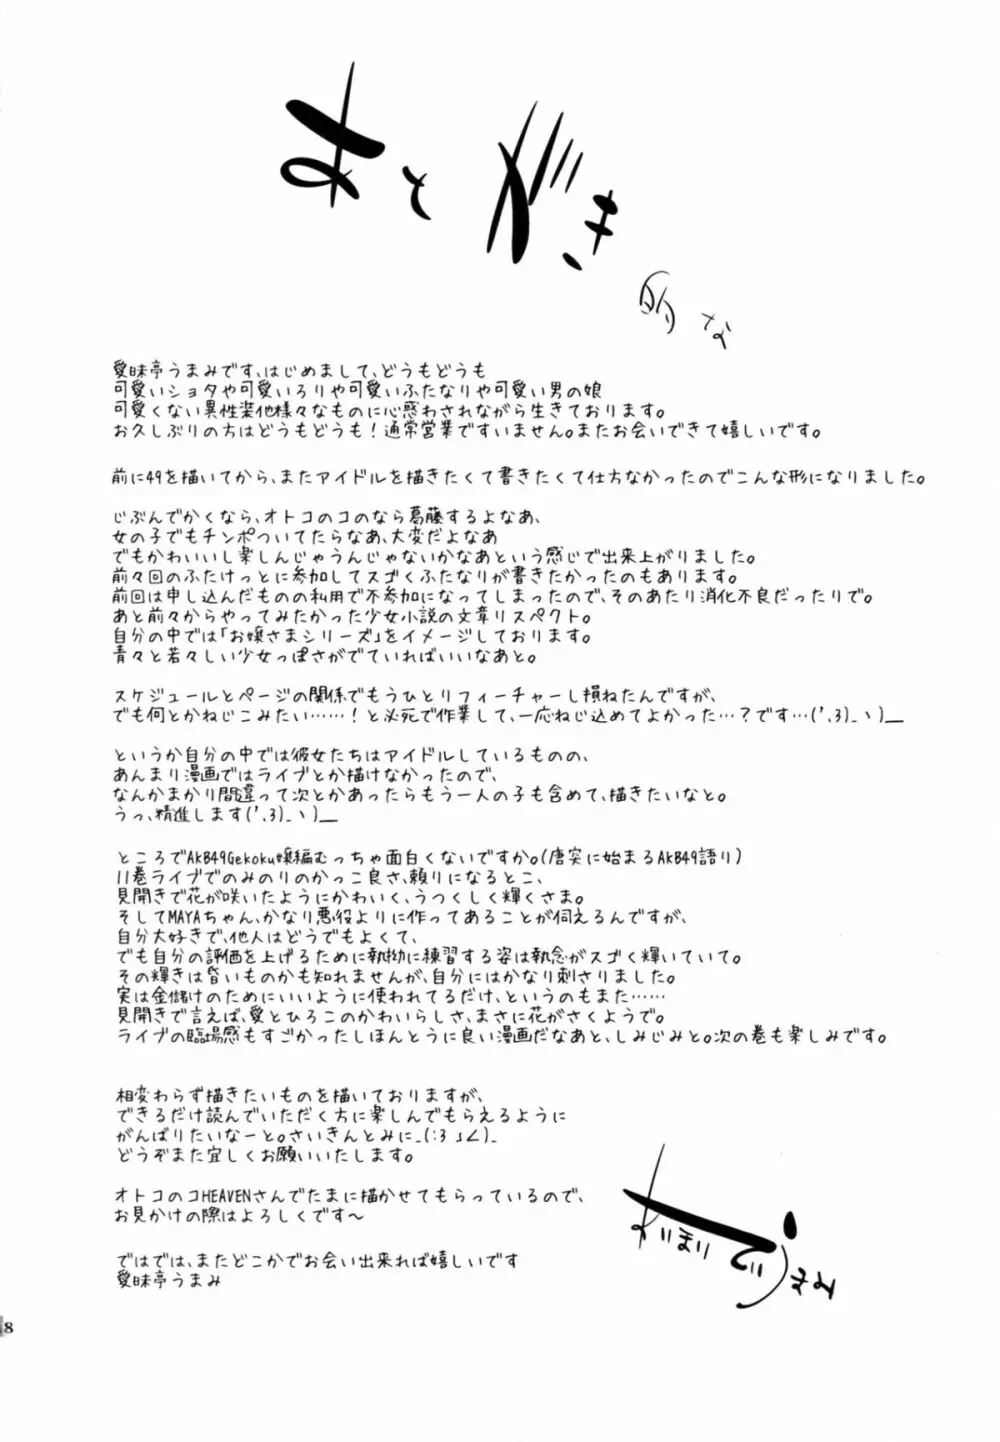 あとがき
的な
愛昧亭うまみです、はじめまして、どうもどうも
可愛いショタや可愛いろりや可愛いふたなりや可愛い男の娘
可愛くない異性装他様々なものに心惑わされながら生きております。
お久しぶりの方はどうもどうも！通常営業ですいません。またお会いできて嬉しいです。
前に49を描いてから、またアイドルを描きたくて書きたくて仕方なかったのでこんな形になりました。
じぶんでかくなら、オトコのコのなら葛藤するよなあ、
女の子でもチンポついてたらなあ、大変だよなあ
でもかわいいし楽しんじゃうんじゃないかなあという感じで出来上がりました。
前々回のふたけっとに参加してスゴくふたなりが書きたかったのもあります。
前回は申し込んだものの利用で不参加になってしまったので、そのあたり消化不良だったりで。
あと前々からやってみたかった少女小説の文章リスペクト。
自分の中では「お嬢さまシリーズ」をイメージしております。
青々と若々しい少女っぽさがでていればいいなあと。
スケジュールとページの関係でもうひとりフィーチャーし損ねたんですが、
でも何とかねじこみたい……！と必死で作業して、一応ねじ込めてよかった…？です…(',3)_ヽ)__
というか自分の中では彼女たちはアイドルしているものの、
あんまり漫画ではライブとか描けなかったので、
なんかまかり間違って次とかあったらもう一人の子も含めて、描きたいなと。
うっ、精進します(',3)_ヽ)__
ところでAKB49Gekoku嬢編むっちゃ面白くないですか。(唐突に始まるAKB49語り)
11巻ライブでのみのりのかっこ良さ、頼りになるとこ、
見開きで花が咲いたようにかわいく、うつくしく輝くさま。
そしてMAYAちゃん、かなり悪役よりに作ってあることが伺えるんですが、
自分大好きで、他人はどうでもよくて、
でも自分の評価を上げるために執拗に練習する姿は執念がスゴく輝いていて。
その輝きは昏いものかも知れませんが、自分にはかなり刺さりました。
実は金儲けのためにいいように使われてるだけ、というのもまた……
見開きで言えば、愛とひろこのかわいらしさ、まさに花がさくようで。
ライブの臨場感もすごかったしほんとうに良い漫画だなあと、しみじみと。次の巻も楽しみです。
相変わらず描きたいものを描いておりますが、
できるだけ読んでいただく方に楽しんでもらえるように
がんばりたいなーと。さいきんとみに_(:3 」∠)_
どうぞまた宜しくお願いいたします。
オトコのコHEAVENさんでたまに描かせてもらっているので、
お見かけの際はよろしくです～
ではでは、またどこかでお会い出来れば嬉しいです
愛昧亭うまみ
あいまいでいうまみ
8